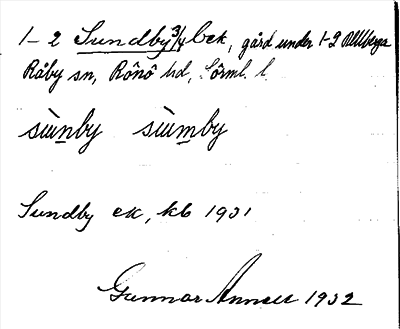 1-2 Sundby 3/4 Øek, gård under 1-2 Rillberga
Råby sn, Rönö hd, Sörml. l.
sùnby sùmby
Sundby ek, kb 1931
Gunnar Annell 1932